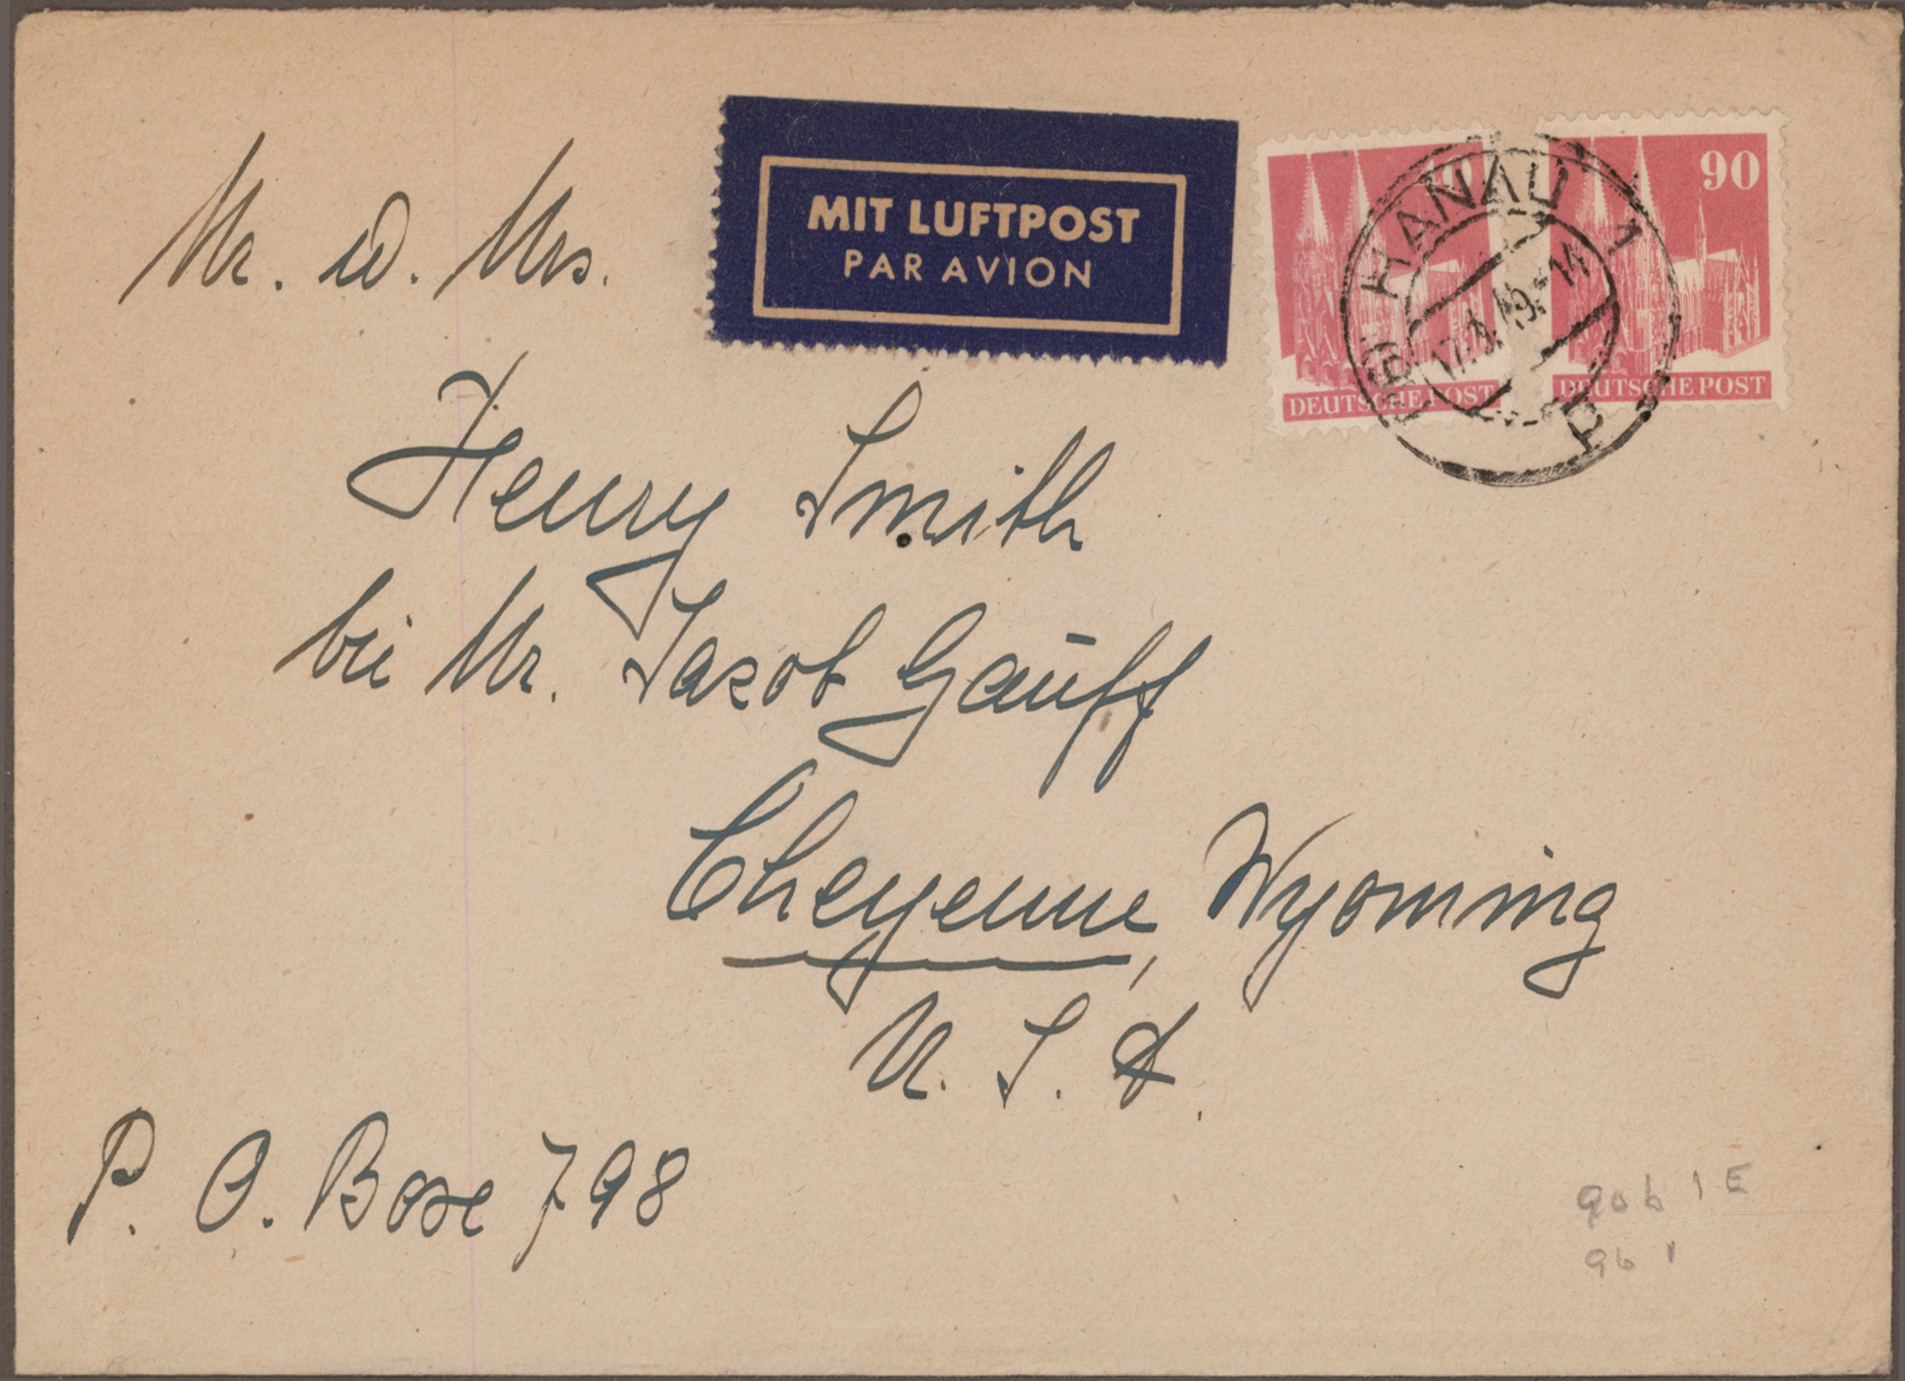 Mr. u. Mrs.
MIT LUFTPOST
PAR AVION
90
DEUTSCHE POST
DEUTSCHE POST
HANAU 1
Henry Smith
bei Mr. Jacob Gauff
Cheyenne, Wyoming
U. S. A.
P. O. Box 798